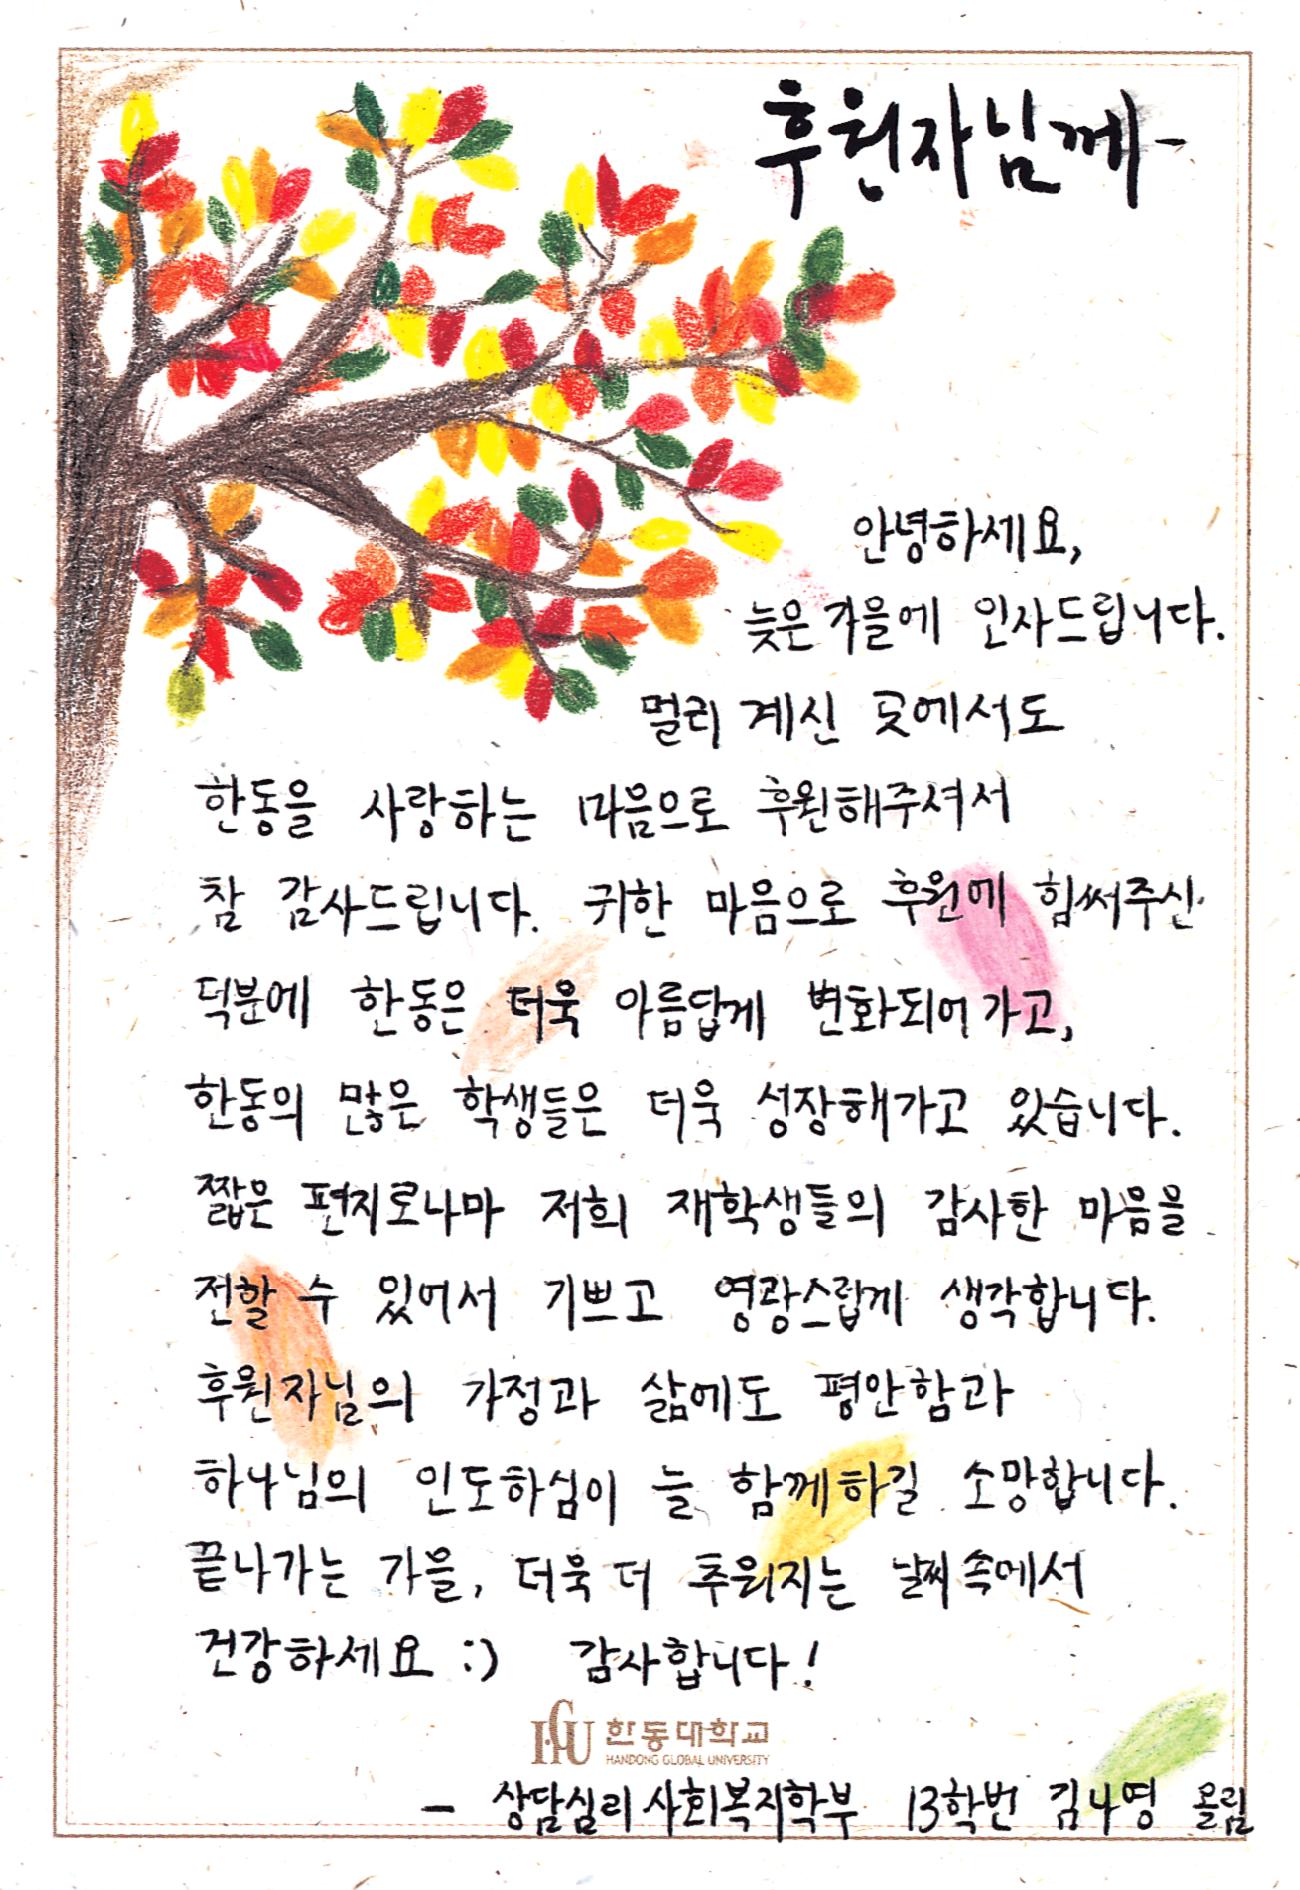 후원자님께-
안녕하세요,
늦은 가을에 인사드립니다.
멀리 계신 곳에서도
한동을 사랑하는 마음으로 후원해주셔서
참 감사드립니다. 귀한 마음으로 후원에 힘써주신
덕분에 한동은 더욱 아름답게 변화되어 가고,
한동의 많은 학생들은 더욱 성장해가고 있습니다.
짧은 편지로나마 저희 재학생들의 감사한 마음을
전할 수 있어서 기쁘고 영광스럽게 생각합니다.
후원자님의 가정과 삶에도 평안함과
하나님의 인도하심이 늘 함께하길 소망합니다.
끝나가는 가을, 더욱 더 추워지는 날씨 속에서
건강하세요 :) 감사합니다!
HGU 한동대학교
HANDONG GLOBAL UNIVERSITY
- 상담심리 사회복지학부 13학번 김나영 올림